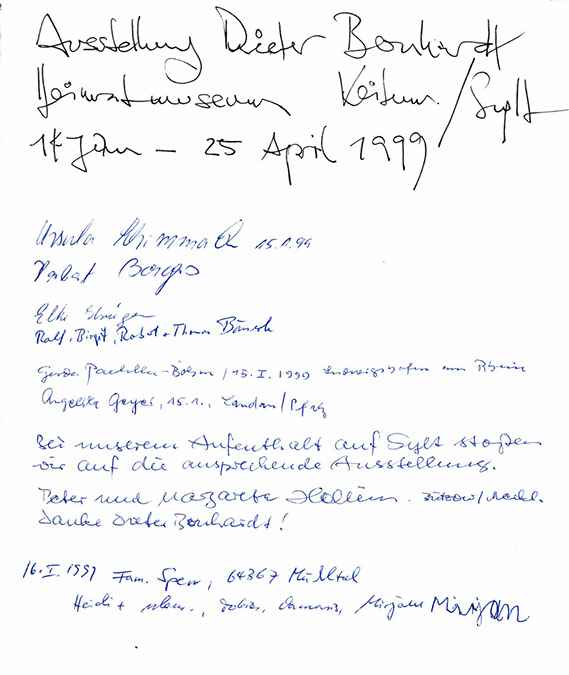 Ausstellung Dieter Bonhardt
Heimatmuseum Keitum / Sylt
14 Jan – 25 April 1999
Ursula 15.1.99
Elke
Ralf, Birgit, Robert + Thomas
Gerda / 15.I.1999 Ludwigshafen am Rhein
Angelika Geyer, 15.1., Landau/Pfalz
Bei unserem Aufenthalt auf Sylt stoßen
wir auf die ansprechende Ausstellung.
Peter und Margarete Bützow/Meckl.
Danke Dieter Bonhardt!
16.I.1999 Fam. Sperr, 64367 Mühltal
Heidi + Tobias, Damaris, Mirjam Mirjam